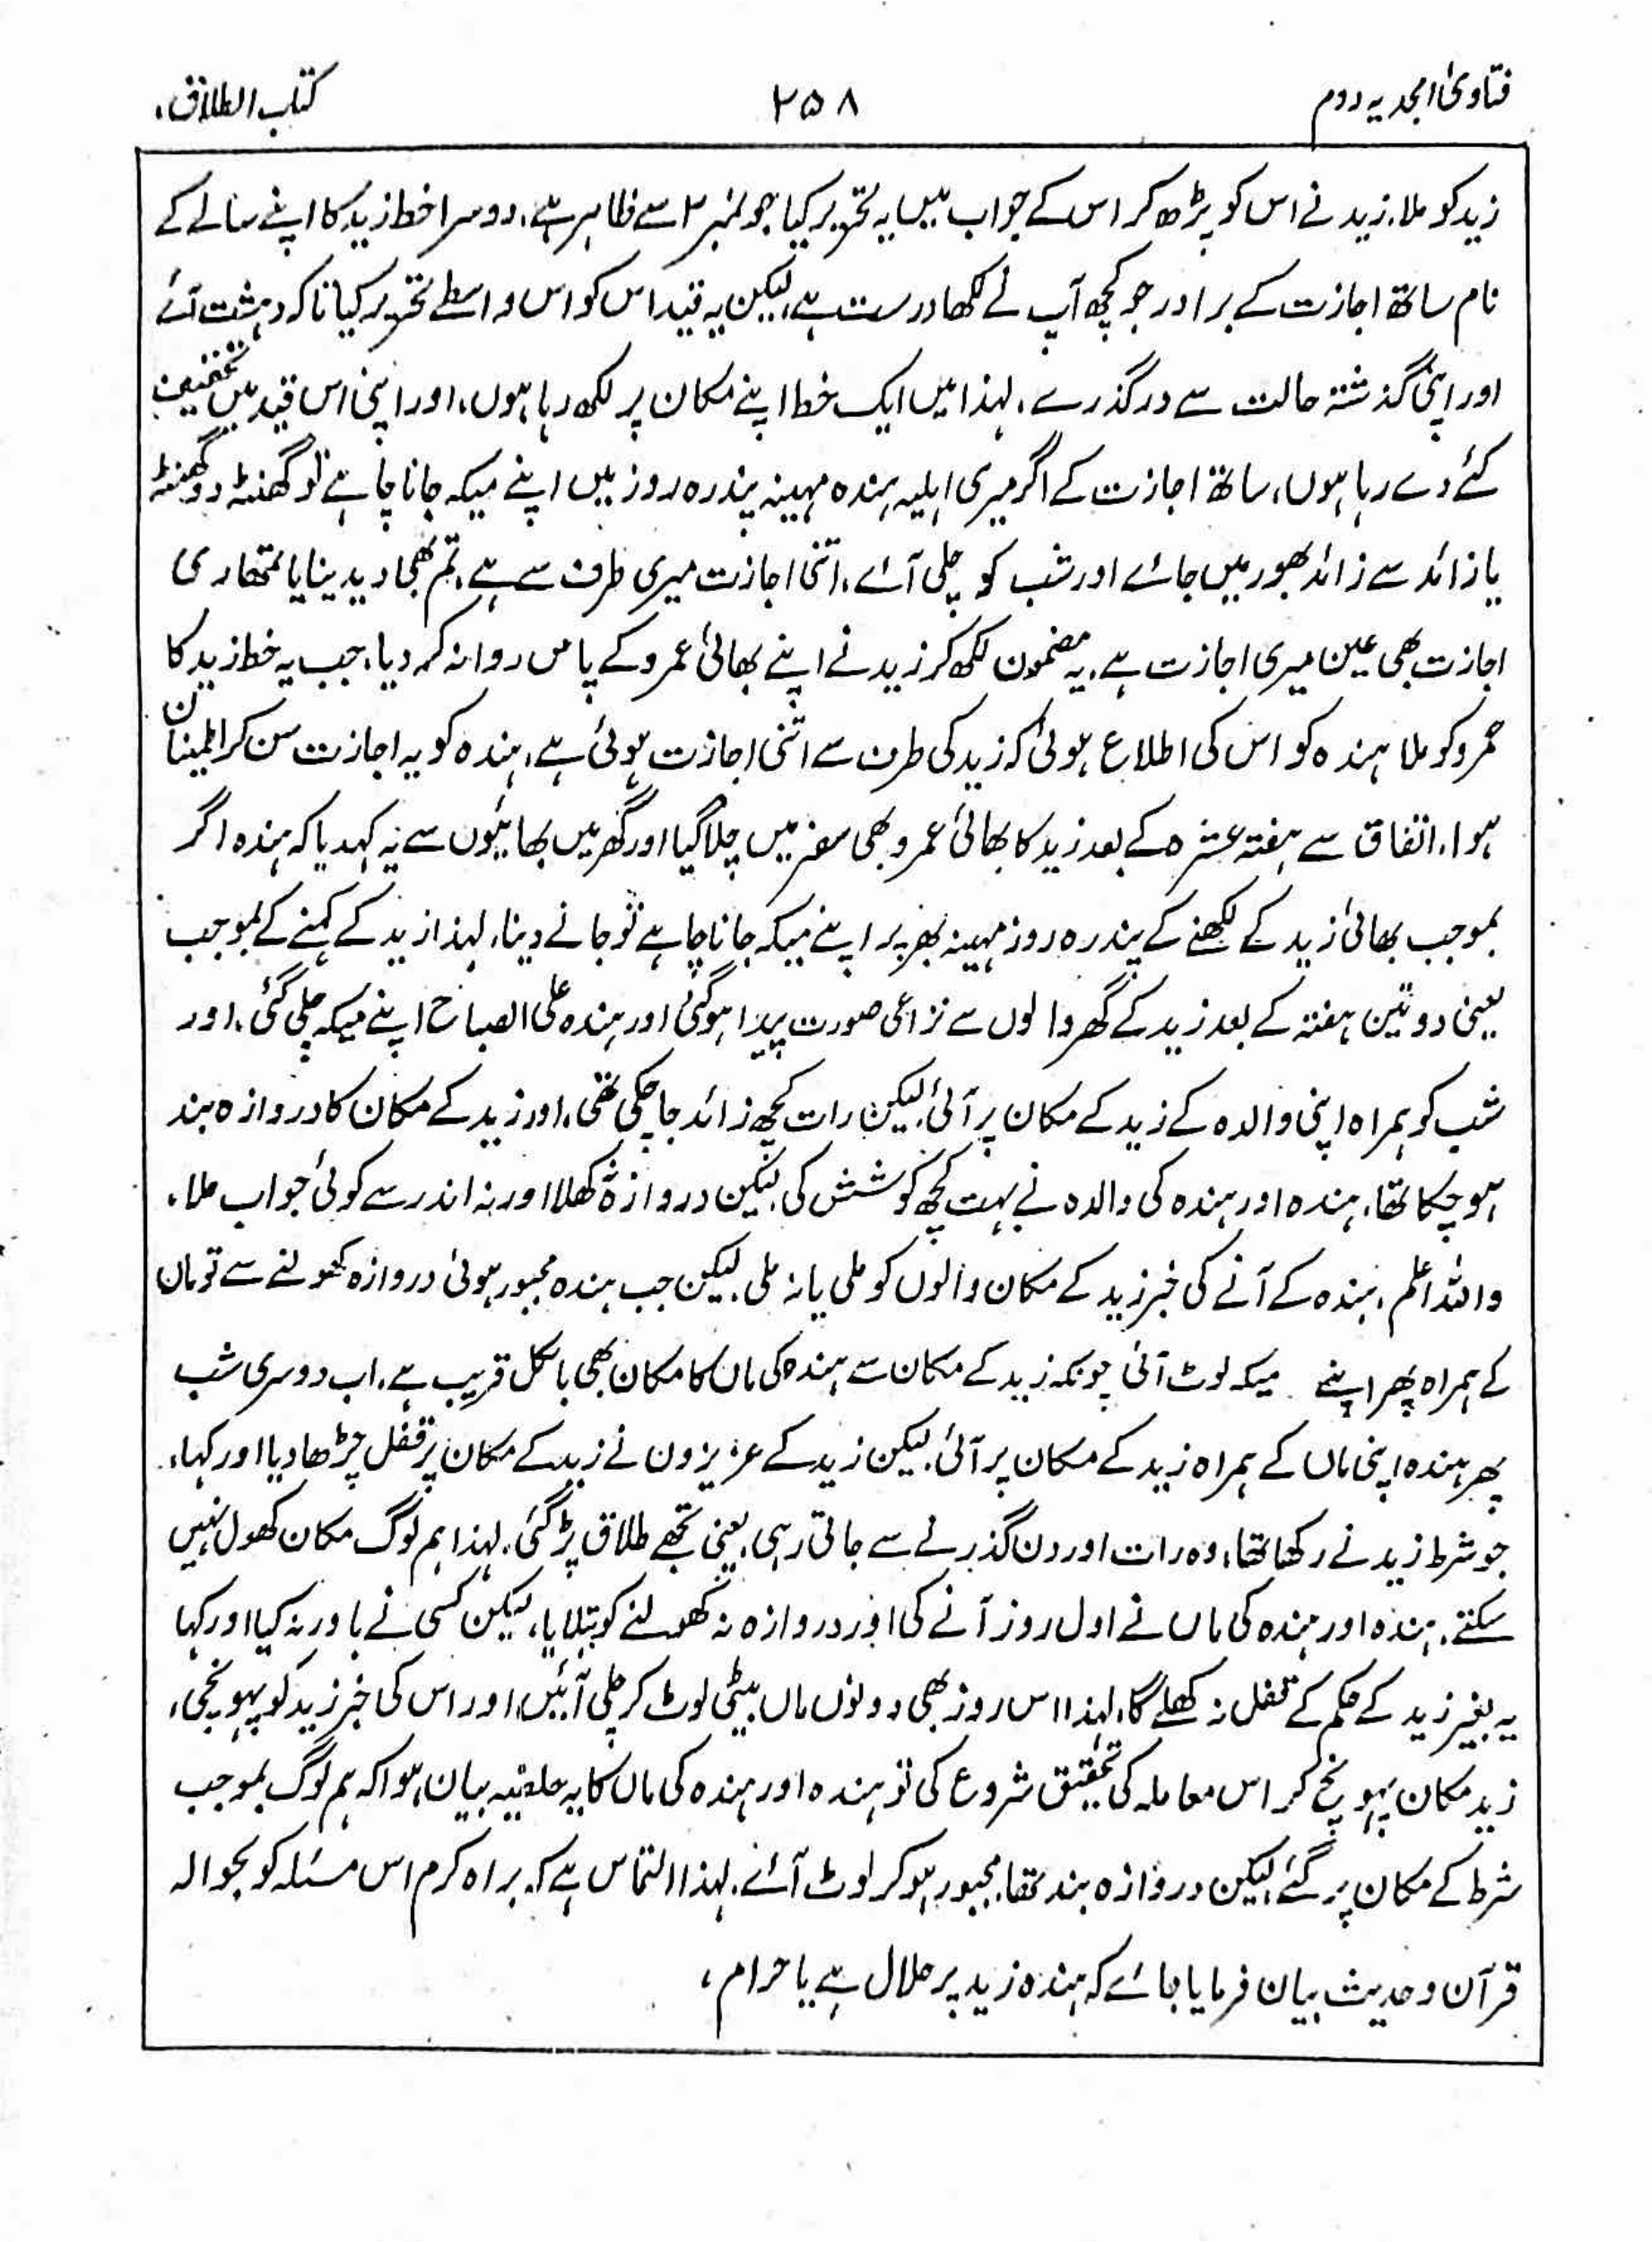 فتاویٰ امجدیہ دوم
۲۵۸
کتاب الطلاق،
زید کو ملا۔ زید نے اس کو پڑھ کر اس کے جواب میں یہ تحریر کیا جو نمبر ۲ سے ظاہر ہے، دوسرا خط زید کا اپنے سالے کے
نام ساتھ اجازت کے برادر جو کچھ آپ نے لکھا درست ہے، لیکن یہ قید اس کو اس واسطے تحریر کیا تاکہ دہشت آئے
اور اپنی گذشتہ حالت سے درگذرے، لہذا میں ایک خط اپنے مکان پر لکھ رہا ہوں، اور اپنی اس قید میں تخفیف
کئے دے رہا ہوں، ساتھ اجازت کے اگر میری اہلیہ ہندہ مہینہ پندرہ روز میں اپنے میکہ جانا چاہے تو گھنٹہ دو گھنٹہ
یا زائد سے زائد بھور میں جائے اور شب کو چلی آئے، اتنی اجازت میری طرف سے ہے، تم بھی دیدینا یا تمھاری
اجازت بھی عین میری اجازت ہے۔ یہ مضمون لکھ کر زید نے اپنے بھائی عمرو کے پاس روانہ کر دیا، جب یہ خط زید کا
عمرو کو ملا ہندہ کو اس کی اطلاع ہوئی کہ زید کی طرف سے اتنی اجازت ہوئی ہے، ہندہ کو یہ اجازت سن کر اطمینان
ہوا، اتفاق سے ہفتہ عشرہ کے بعد زید کا بھائی عمرو بھی سفر میں چلا گیا اور گھر میں بھائیوں سے یہ کہدیا کہ ہندہ اگر
بموجب بھائی زید کے لکھنے کے پندرہ روز مہینہ بھر پر اپنے میکہ جانا چاہے تو جانے دینا، لہذا زید کے کہنے کے بموجب
یعنی دو تین ہفتہ کے بعد زید کے گھر والوں سے نزاعی صورت پیدا ہوگئی اور ہندہ علی الصباح اپنے میکہ چلی گئی، اور
شب کو ہمراہ اپنی والدہ کے زید کے مکان پر آئی، لیکن رات کچھ زائد جا چکی تھی، اور زید کے مکان کا دروازہ بند
ہو چکا تھا، ہندہ اور ہندہ کی والدہ نے بہت کچھ کوشش کی لیکن دروازہ نہ کھلا اور نہ اندر سے کوئی جواب ملا،
واللہ اعلم، ہندہ کے آنے کی خبر زید کے مکان والوں کو ملی یا نہ ملی، لیکن جب ہندہ مجبور ہوئی دروازہ کھولنے سے تو ماں
کے ہمراہ پھر اپنے میکہ لوٹ آئی چونکہ زید کے مکان سے ہندہ کی ماں کا مکان بھی بالکل قریب ہے، اب دوسری شب
پھر ہندہ اپنی ماں کے ہمراہ زید کے مکان پر آئی، لیکن زید کے عزیزون نے زید کے مکان پر قفل چڑھا دیا اور کہا،
جو شرط زید نے رکھا تھا، وہ رات اور دن گذرنے سے جاتی رہی، یعنی تجھے طلاق پڑ گئی، لہذا ہم لوگ مکان کھول نہیں
سکتے، ہندہ اور ہندہ کی ماں نے اول روز آنے کی اور دروازہ نہ کھولنے کو بتلایا، لیکن کسی نے باور نہ کیا اور کہا
یہ بغیر زید کے حکم کے قفل نہ کھلے گا، لہذا اس روز بھی دونوں ماں بیٹی لوٹ کر چلی آئیں، اور اس کی خبر زید کو پہونچی،
زید مکان پہونچ کر اس معاملہ کی تحقیق شروع کی تو ہندہ اور ہندہ کی ماں کا یہ حلفیہ بیان ہوا کہ ہم لوگ بموجب
شرط کے مکان پر گئے لیکن دروازہ بند تھا، مجبور ہو کر لوٹ آئے، لہذا التماس ہے کہ براہ کرم اس مسئلہ کو بحوالہ
قرآن و حدیث بیان فرمایا جائے کہ ہندہ زید پر حلال ہے یا حرام،